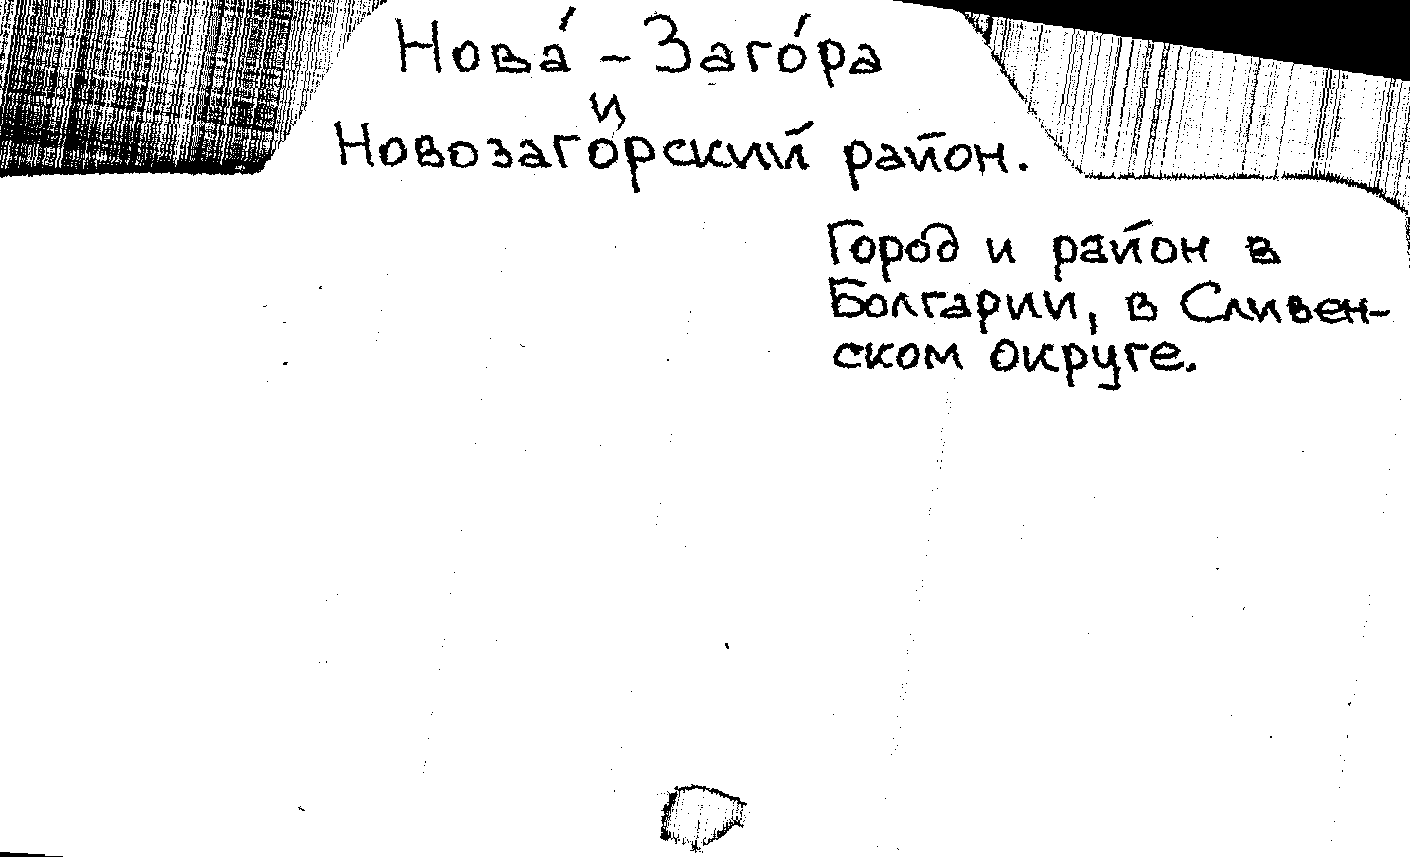 Нова́ - Заго́ра
и
Новозаго́рский район.
Город и район в
Болгарии, в Сливен-
ском округе.